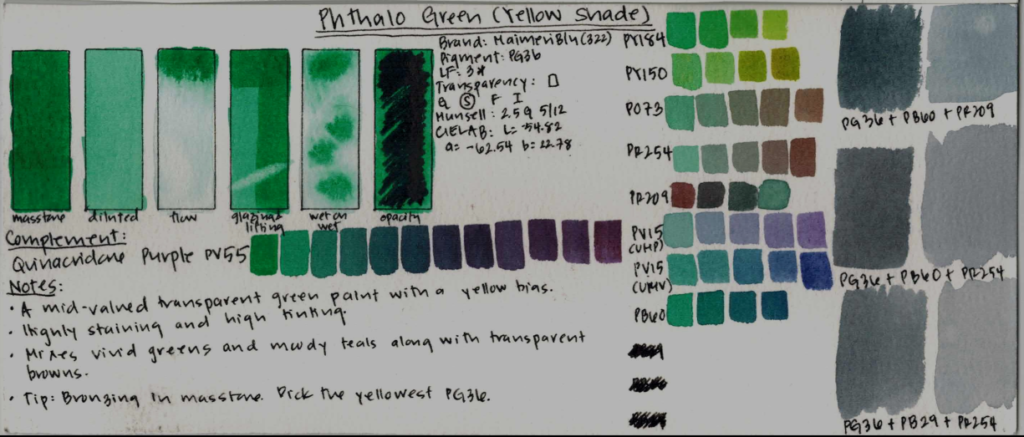 Phthalo Green (Yellow Shade)
Brand: MaimeriBlu (322)
Pigment: PG36
LF: 3*
Transparency: □
G Ⓢ F I
Munsell: 2.5G 5/12
CIELAB: L= 54.82
a= -62.54 b= 22.78
masstone
diluted
flow
glazing &
lifting
wet on
wet
opacity
Complement:
Quinacridone Purple PV55
Notes:
• A mid-valued transparent green paint with a yellow bias.
• Highly staining and high tinting.
• Mixes vivid greens and moody teals along with transparent
browns.
• Tip: Bronzing in masstone. Pick the yellowest PG36.
PY184
PY150
PO73
PR254
PR209
PV15
PV15
PB60
PG36 + PB60 + PR209
PG36 + PB60 + PR254
PG36 + PB29 + PR254